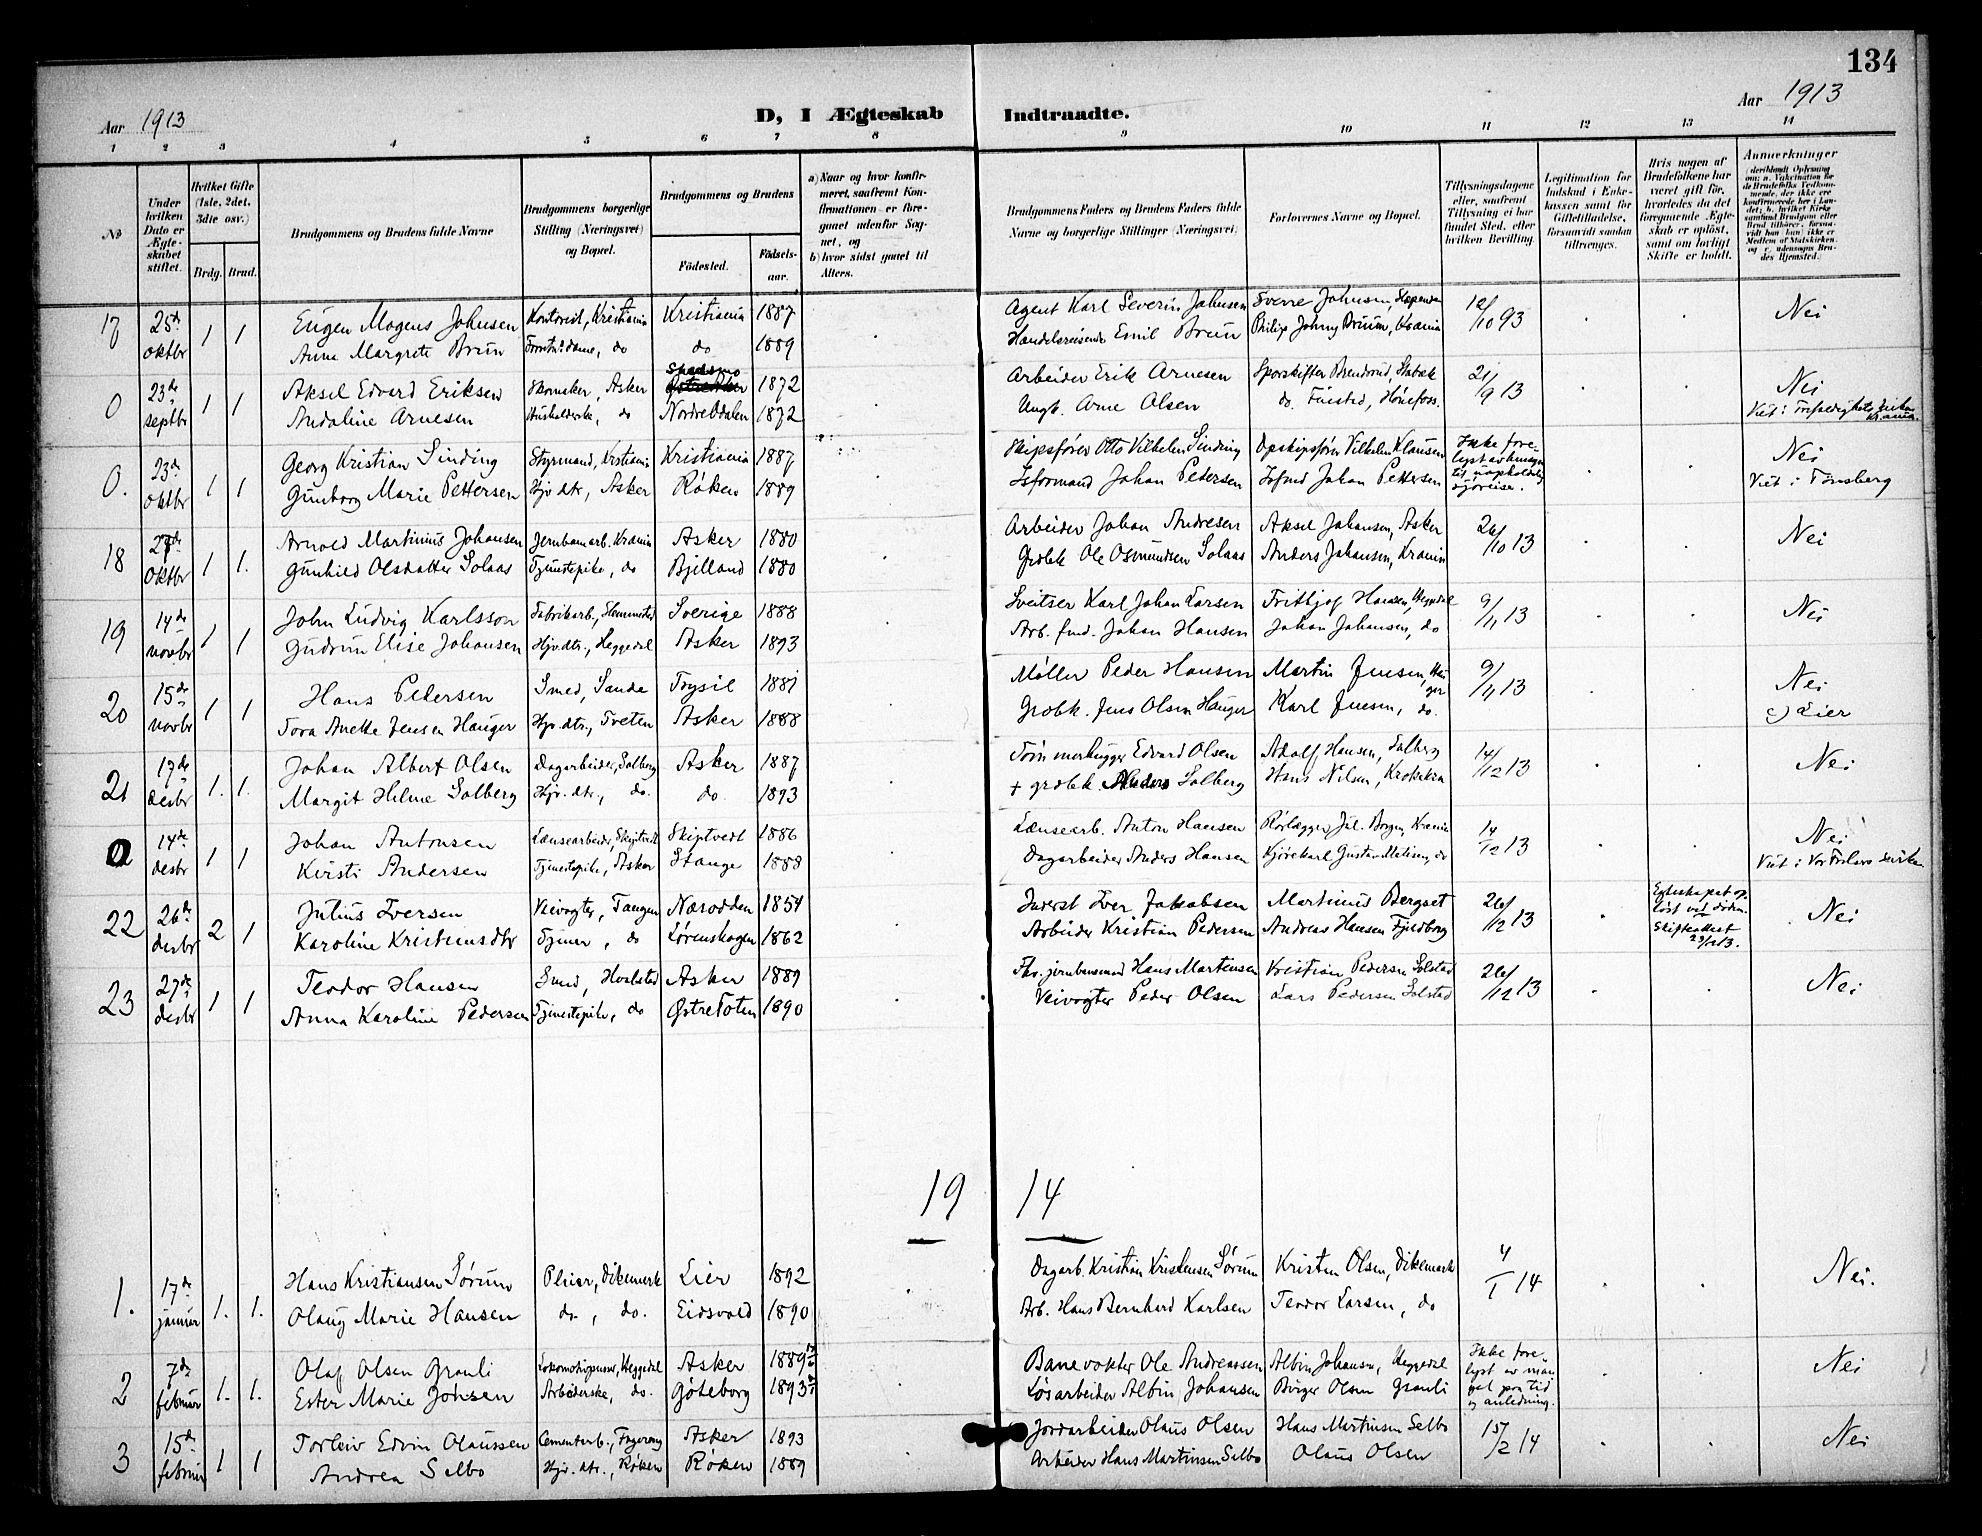 134
Aar 1913
D, I Ægteskab Indtraadte.
Aar 1913
1 2 3 4 5 6 7 8 9 10 11 12 13 14
No
Under hvilken Dato er Ægteskabet stiftet.
Hvilket Gifte (1ste, 2det, 3dte osv.)
Brdg. Brud.
Brudgommens og Brudens fulde Navne
Brudgommens borgerlige Stilling (Næringsvei) og Bopæl.
Brudgommens og Brudens
Fødested. Fødselsaar.
a) Naar og hvor konfirmeret, saafremt Konfirmationen er foregaaet udenfor Sognet, og
b) hvor sidst gaaet til Alters.
Brudgommens Faders og Brudens Faders fulde Navne og borgerlige Stillinger (Næringsvei)
Forlovernes Navne og Bopæl.
Tillysningsdagene eller, saafremt Tillysning ei har fundet Sted, efter hvilken Bevilling.
Legitimation for Indskud i Enkekassen samt for Giftetilladelse, forsaavidt saadan tiltrænges.
Hvis nogen af Brudefolkene har været gift før, hvorledes da det foregaaende Ægteskab er opløst, samt om lovligt Skifte er holdt.
Anmerkninger
17 25de oktbr 1 1 Eugen Mogens Johnsen Kontorist, Kristiania Kristiania 1887 Agent Karl Severin Johnsen Sverre Johnsen, 12/10 93 Nei
Anna Margrete Brun do do 1889 Handelsreisende Emil Brun Philip Johny Bruun, Krania
0 23de septbr 1 1 Aksel Edvard Eriksen Skomaker, Asker 1872 Arbeider Erik Arnesen 21/9 13 Nei
Andaline Arnesen Husholderske, do NordreOdalen 1872 Ungk. Arne Olsen do. Hønefoss. Viet i Trefoldighets kirke Krania.
0. 23de oktbr 1 1 Georg Kristian Sinding Styrmand, Krstiania Kristiania 1887 Skipsfører Otto Vilhelm Sinding Opskipsfører Vilhelm Klausen Ikke fore- Nei
lyst av hensyn
Gunborg Marie Pettersen Hjv dtr, Asker Røken 1889 Isformand Johan Petersen Isfmd Johan Pettersen til uopholdelig Viet i Tønsberg
sjøreise.
18 27de oktbr 1 1. Arnold Martinius Johansen Jernbanarb. Krania Asker 1880 Arbeider Johan Andresen Aksel Johansen, Asker 26/10 13 Nei
Gunhild Olsdatter Solaas Tjenstepike, do Bjelland 1880 Grdbk Ole Osmundsen Solaas Anders Johansen, Krania
19 14de novbr 1 1 John Ludvig Karlsson Fabrikarb., Slemmestad Sverige 1888 Sveitser Karl Johan Larsen Fritbjof Hansen, Heggedal 9/11 13 Nei
Gudrun Elise Johansen Hjv.dtr., Heggedal Asker 1893 Arb. fmd. Johan Hansen Johan Johansen, do
20 15de novbr 1 1 Hans Pedersen Smed, Sande Trysil 1881 Møller Peder Hansen Martin Jensen, Hauger 9/11 13 Nei
Tora Anette Jensen Hauger Hjv.dtr., Tveten Asker 1888 Grdbk. Jens Olsen Hauger Karl Jensen, do. c) Lier
21 17de desbr 1. 1. Johan Albert Olsen Dagarbeider, Solberg Asker 1887 Tømmerhugger Edvard Olsen Adolf Hansen, Solberg 14/12 13 Nei
Margit Helene Solberg Hjv. dtr., do. do. 1893 + grdbk Anders Solberg Hans Nilsen, Krokskra
0 14de desbr 1 1 Johan Antonsen Lænsearbeider, Skiptvedt Skiptvedt 1886 Lænsearb. Anton Hansen Rørlægger Jul. Borgen, Krania 14/12 13 Nei
Kirsti Andersen Tjenestepike, Asker Stange 1888 Dagarbeider Anders Hansen Kjørekarl Gustav Matisen, do Viet i Vor Frelsers kirke
22 26de desbr 2 1 Julius Iversen Veivogter, Tangen Næsodden 1854 Inderst Iver Jakobsen Martinius Bergset 26/12 13 Egteskapet op- Nei
løst ved døden.
Karoline Kristensdtr Tjener, do Lørenskogen 1862 Arbeider Kristian Pedersen Andreas Hansen Fjeldborg Skifteattest
29/12 13.
23 27de desbr 1 1 Teodor Hansen Smed, Hvalstad Asker 1889 Fhv. jernbanemand Hans Martensen Kristian Pedersen Solstad 26/12 13 Nei
Anna Karoline Pedersen Tjenestepike, do ØstreToten 1890 Veivogter Peder Olsen Lars Pedersen Solstad
19 14
1. 17de januar 1. 1. Hans Kristiansen Sørum Pleier, Dikemark Lier 1892 Dagarb. Kristian Kristensen Sørum Kristen Olsen, Dikemark 4/1 14 Nei.
Olaug Marie Hansen do, do. Eidsvold 1890 Arb. Hans Bernhard Karlsen Teodor Larsen, do
2 7de februar 1. 1. Olaf Olsen Granli Lokomotivpusser, Heggedal Asker 1889 Banevokter Ole Andreassen Albin Johansen, Heggedal Ikke fore- Nei
lyst av man-
Ester Marie Johnsen Arbeiderske, do. Gøteborg 1893 Løsarbeider Albin Johansen Birger Olsen Granli gel paa tid
og anledning.
3 15de februar 1 1 Torleiv Edvin Olaussen Cementarb., Asker 1893 Jordarbeider Olaus Olsen Hans Martinsen Selbo 15/2 14 Nei
Andrea Selbo Hjv. dtr., Røken Røken 1889 Arbeider Hans Martinsen Selbo Olaus Olsen